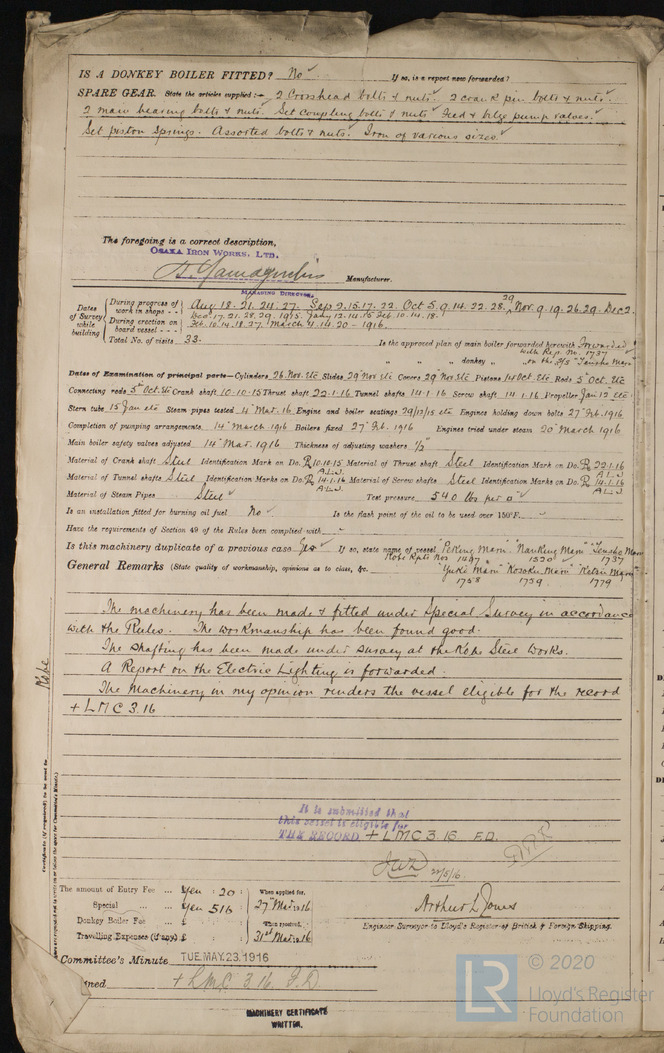 IS A DONKEY BOILER FITTED? No ✓ If so, is a report now forwarded?
SPARE GEAR. State the articles supplied:— 2 Crosshead bolts & nuts. 2 crank pin bolts & nuts.
2 main bearing bolts & nuts. Set coupling bolts & nuts Feed & bilge pump valves.
Set piston springs. Assorted bolts & nuts. Iron of various sizes.
The foregoing is a correct description,
OSAKA IRON WORKS, LTD.
Manufacturer.
MANAGING DIRECTOR.
Dates of Survey while building
During progress of work in shops - - Aug 18. 21. 24. 27. Sep 2. 15. 17. 22. Oct 5. 9. 14. 22. 28. 29 Nov. 9. 19. 26. 29. Dec 2.
During erection on board vessel - - - Dec. 17. 21. 28. 29. 1915.
Feb. 10. 14. 18. 27. March 4. 14. 20 - 1916.
Total No. of visits 33. Is the approved plan of main boiler forwarded herewith Forwarded with Rep. No. 1737
" " " donkey " " " on the S/S "Tensho Maru"
Dates of Examination of principal parts—Cylinders 26 Nov. etc Slides 29 Nov etc Covers 29 Nov etc Pistons 14 Oct. etc Rods 5 Oct. etc
Connecting rods 5 Oct. etc Crank shaft 10-10-15 Thrust shaft 22-1-16 Tunnel shafts 14-1-16 Screw shaft 14-1-16 Propeller Jan 12 etc
Stern tube 15 Jan etc Steam pipes tested 4 Mar. 16 Engine and boiler seatings 29/12/15 etc Engines holding down bolts 27 Feb. 1916
Completion of pumping arrangements 14 March 1916 Boilers fixed 27 Feb. 1916 Engines tried under steam 20 March 1916
Main boiler safety valves adjusted 14 Mar. 1916 Thickness of adjusting washers ½"
Material of Crank shaft Steel Identification Mark on Do. 10.10.15 A.L.J. Material of Thrust shaft Steel Identification Mark on Do. 22.1.16 A.L.J.
Material of Tunnel shafts Steel Identification Marks on Do. 14.1.16 A.L.J. Material of Screw shafts Steel Identification Marks on Do. 14.1.16 A.L.J.
Material of Steam Pipes Steel ✓ Test pressure 540 lbs per □"
Is an installation fitted for burning oil fuel No ✓ Is the flash point of the oil to be used over 150°F.
Have the requirements of Section 49 of the Rules been complied with
Is this machinery duplicate of a previous case Yes If so, state name of vessel "Peking Maru" "Nanking Maru" "Tensho Maru
Kobe Rpts Nos 1497 1520 1737
General Remarks (State quality of workmanship, opinions as to class, &c. "Yuki Maru" "Kosoku Maru" "Keishin Maru"
1758 1759 1779
The machinery has been made & fitted under Special Survey in accordance
with the Rules. The workmanship has been found good.
The shafting has been made under survey at the Kobe Steel Works.
A Report on the Electric Lighting is forwarded.
The machinery in my opinion renders the vessel eligible for the record
+ LMC 3.16
Kobe
Certificate (if required) to be sent to
It is submitted that
this vessel is eligible for
THE RECORD + LMC 3.16 F.D.
22/5/16.
The amount of Entry Fee ... Yen : 20 : When applied for,
Special ... Yen 516 : 27 Mar. 16
Donkey Boiler Fee ... £ : : When received,
Travelling Expenses (if any) £ : : 31st Mar. 16
Arthur L Jones
Engineer Surveyor to Lloyd's Register of British & Foreign Shipping.
Committee's Minute TUE. MAY. 23. 1916
+ LMC 3.16 F.D
MACHINERY CERTIFICATE
WRITTEN.
LR © 2020
Lloyd's Register
Foundation